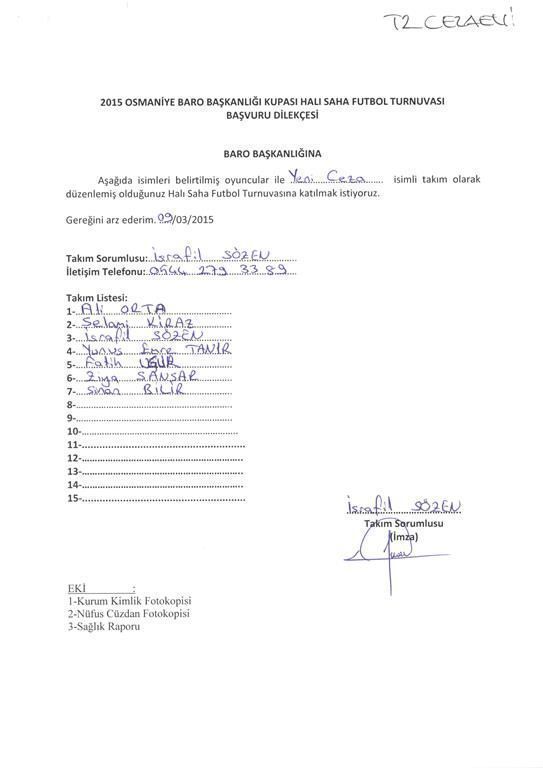 T2 CEZAEVİ
2015 OSMANİYE BARO BAŞKANLIĞI KUPASI HALI SAHA FUTBOL TURNUVASI
BAŞVURU DİLEKÇESİ
BARO BAŞKANLIĞINA
Aşağıda isimleri belirtilmiş oyuncular ile Yeni Ceza isimli takım olarak
düzenlemiş olduğunuz Halı Saha Futbol Turnuvasına katılmak istiyoruz.
Gereğini arz ederim. 09/03/2015
Takım Sorumlusu: İsrafil SÖZEN
İletişim Telefonu: 0544 279 33 89
Takım Listesi:
1- Ali ORTA
2- Selami KİRAZ
3- İsrafil SÖZEN
4- Yunus Emre TANIR
5- Fatih UĞUR
6- Ziya SANSAR
7- Sinan BİLİR
8-
9-
10-
11-
12-
13-
14-
15-
İsrafil SÖZEN
Takım Sorumlusu
(İmza)
EKİ :
1-Kurum Kimlik Fotokopisi
2-Nüfus Cüzdan Fotokopisi
3-Sağlık Raporu